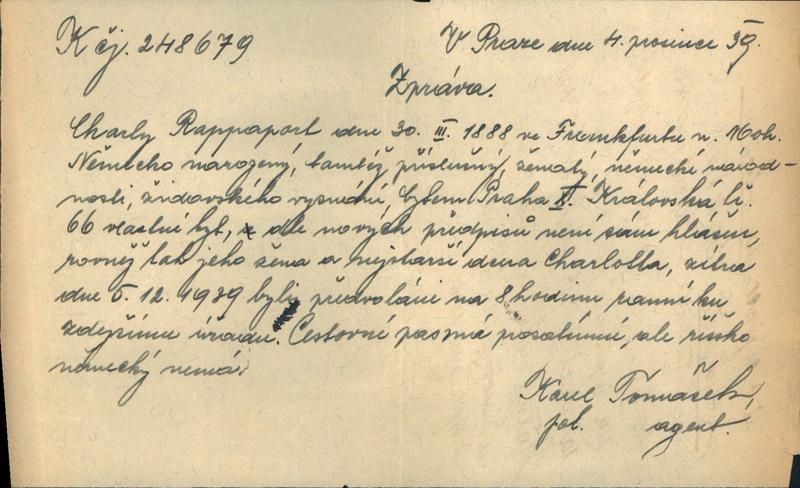 K čj. 248679
V Praze dne 4. prosince 39.
Zpráva.
Charly Rappaport dne 30. III. 1888 ve Frankfurtu n. Moh.
Německo narozený, tamtéž příslušný, ženatý, německé národ-
nosti, židovského vyznání, bytem Praha X. Královská tř.
66 vlastní byt, dle nových předpisů není sám hlášen,
rovněž tak jeho žena a nejstarší dcera Charlotta, zítra
dne 5. 12. 1939 byli předvoláni na 8 hodinu ranní ku
zdejšímu úřadu. Cestovní pas má prošlý, ale říšsko
německý nemá.
Karel Tomášek,
pol. agent.